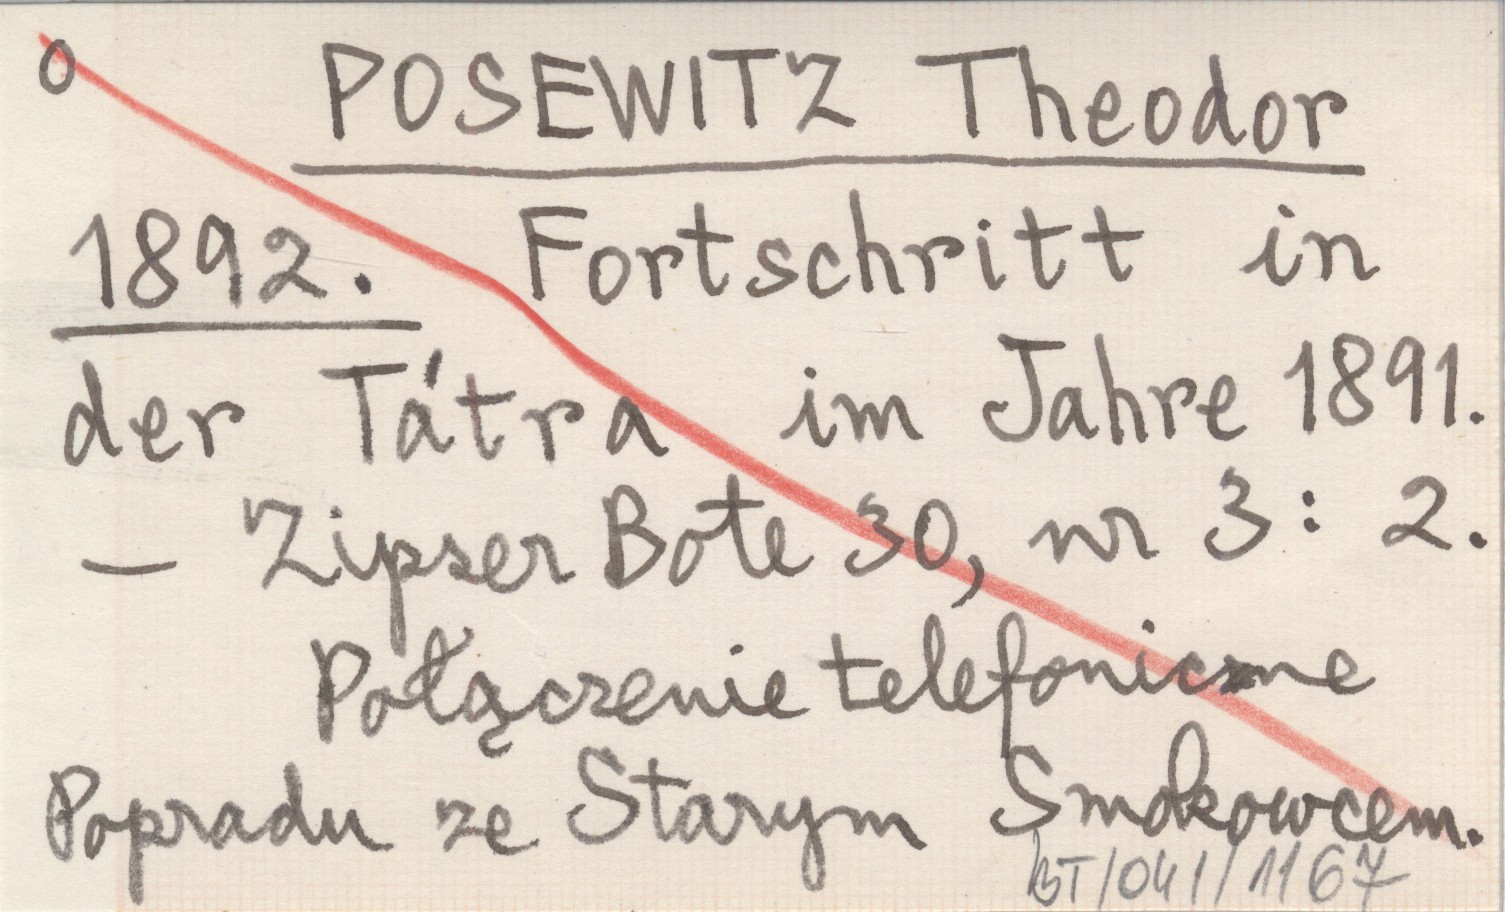 o POSEWITZ Theodor
1892. Fortschritt in
der Tátra im Jahre 1891.
— Zipser Bote 30, nr 3: 2.
Połączenie telefoniczne
Popradu ze Starym Smokowcem.
BT/041/1167